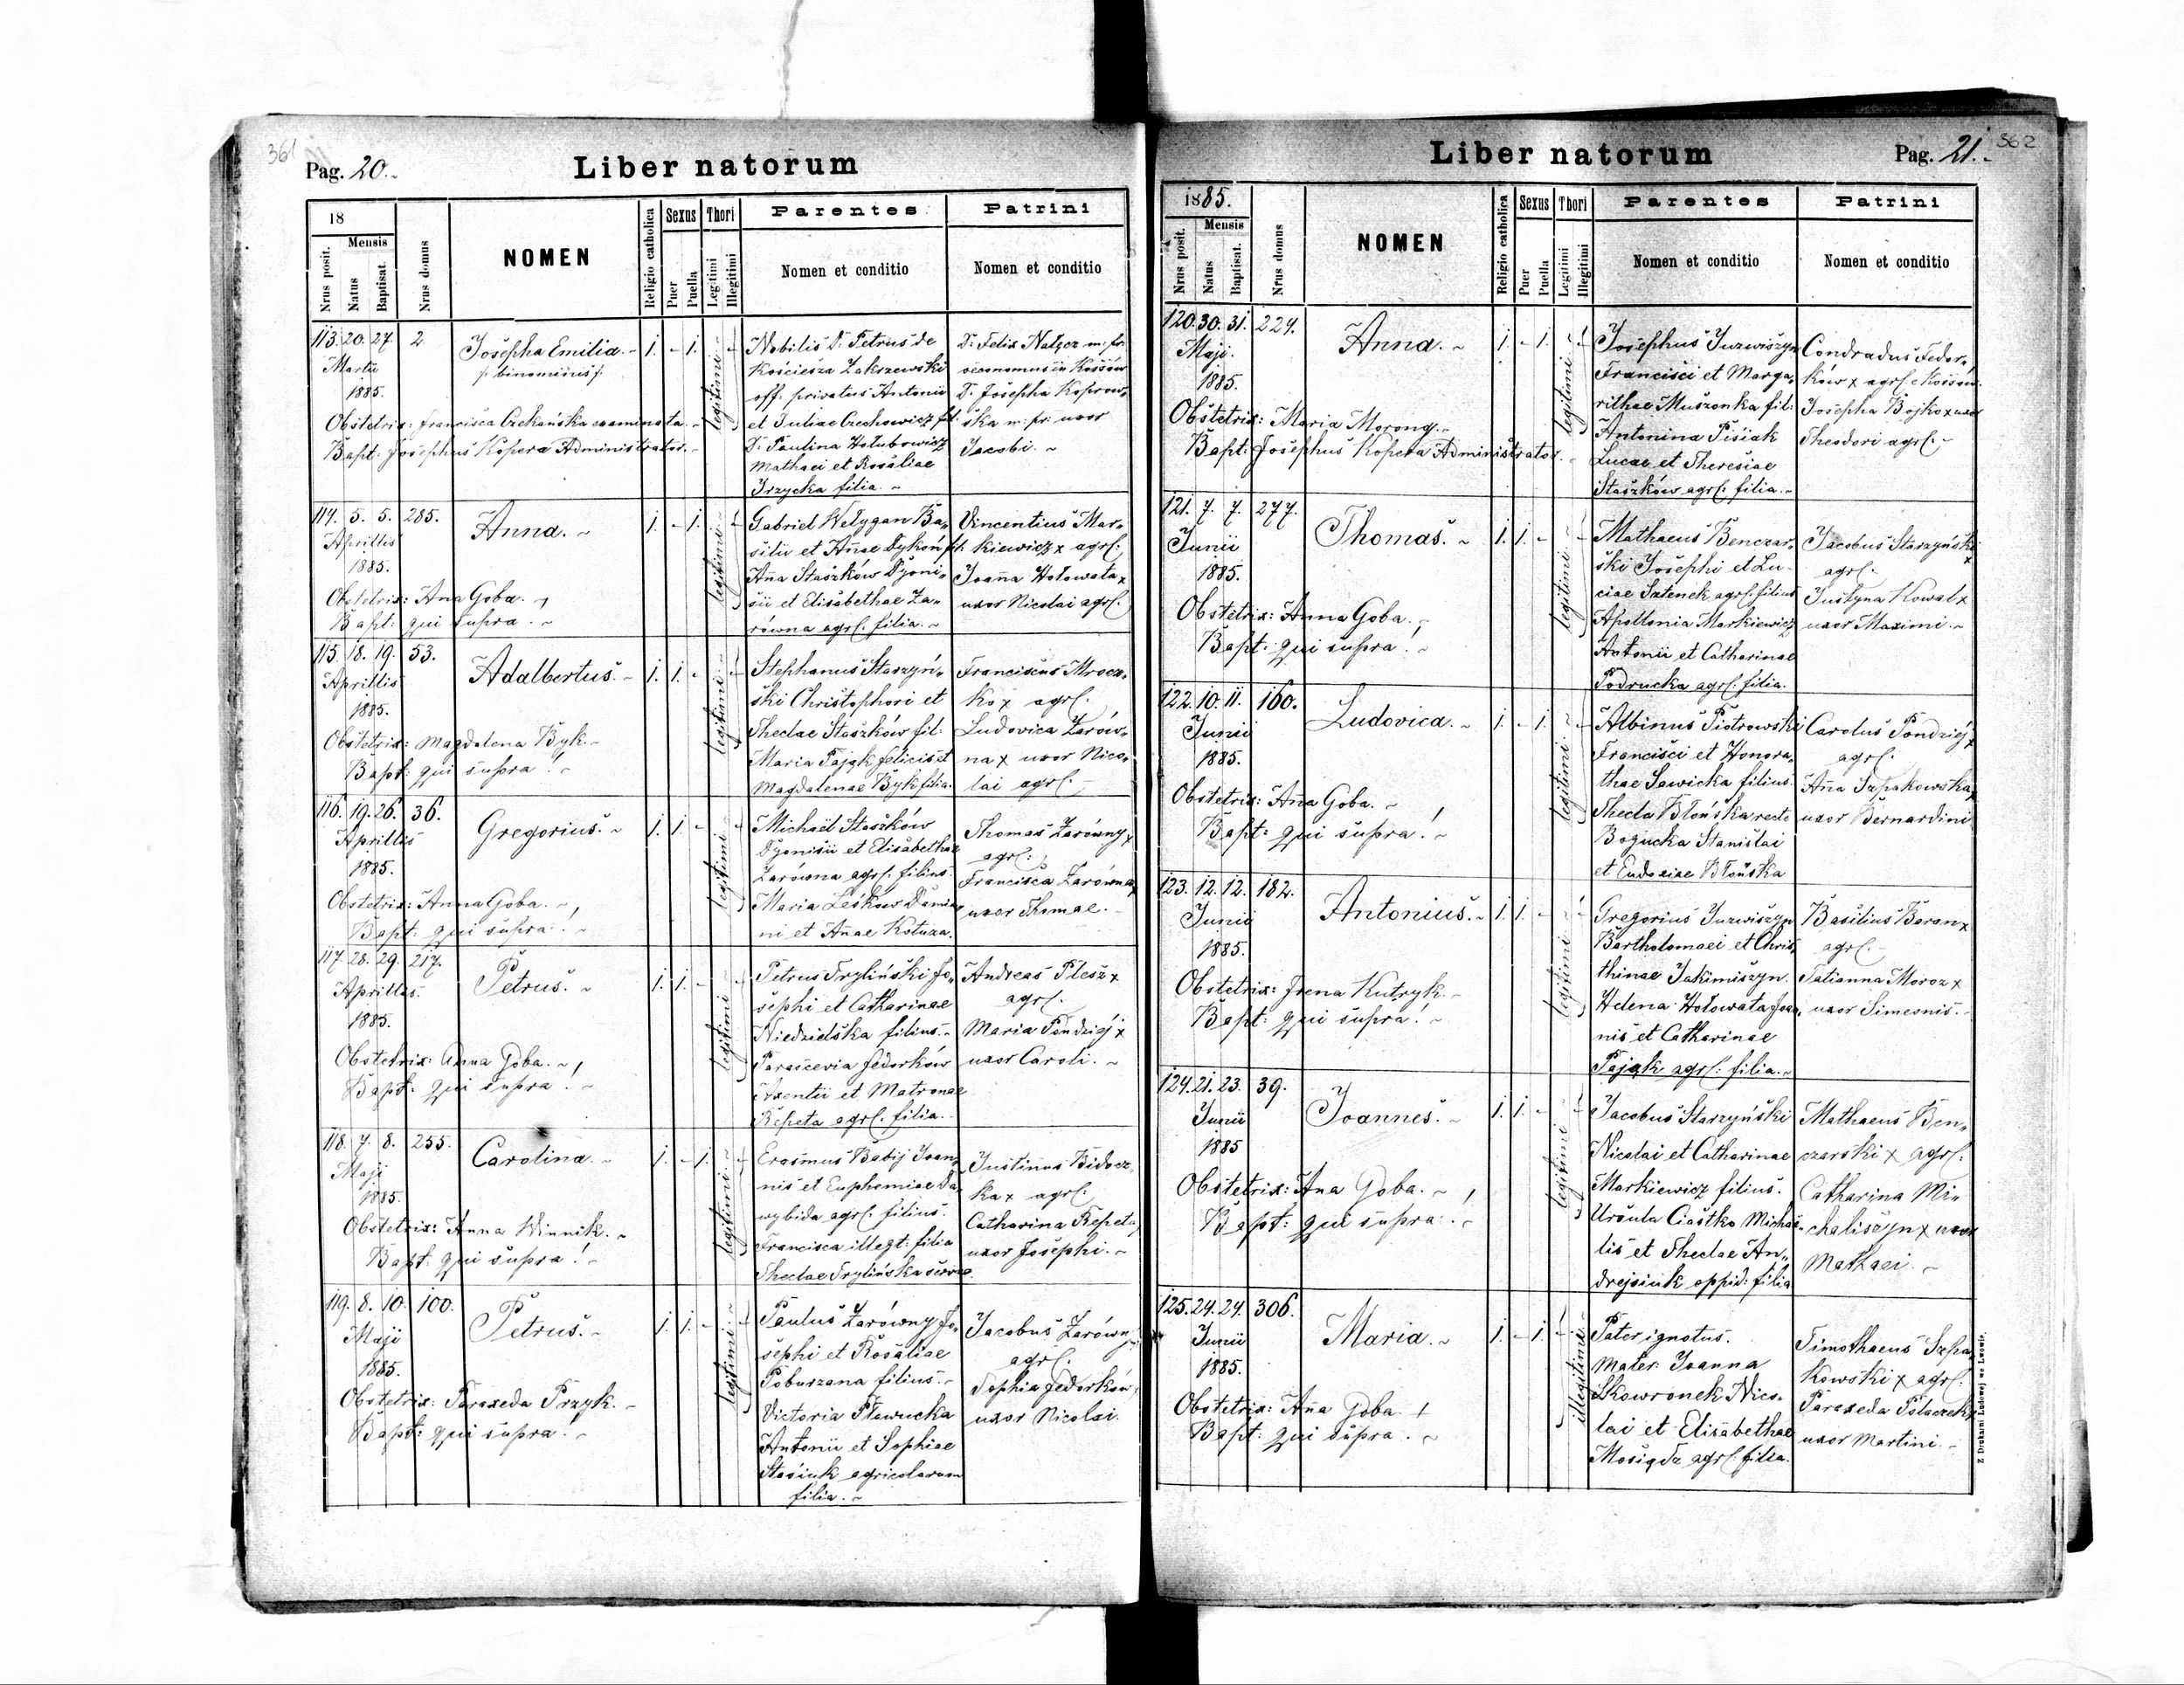 361
Pag. 20.
Liber natorum
18
Nrus posit.
Mensis
Natus
Baptisat.
Nrus domus
NOMEN
Religio catholica
Sexus
Puer
Puella
Thori
Legitimi
Illegitimi
Parentes
Nomen et conditio
Patrini
Nomen et conditio
113. 20. 27. 2.
Martii
1885.
Josepha Emilia.
binominis
1. - 1.
legitimi
Nobilis D. Petrus de
Kościesza Zakszewski
off. privatus Antonii
et Juliae Czechowicz fil:
D. Paulina Hołubowicz
Mathaei et Rosaliae
Irzycka filia.
D. Felix Nałęcz m: pr:
oeconomus in Kossów
D. Josepha Koprow-
ska m: pr: uxor
Jacobi.
Obstetrix: Francisca Czekańska examinata.
Bapt: Josephus Kopera Administrator.
114. 5. 5. 285.
Aprillis
1885.
Anna.
1. - 1.
legitimi
Gabriel Wełygan Ba-
silii et Annae Dykoń fil:
Anna Staszków Dyoni-
sii et Elisabethae Ża-
równa agrl. filia.
Vincentius Mar-
kiewicz x agrl.
Joanna Hołowata x
uxor Nicolai agrl.
Obstetrix: Anna Goba.
Bapt: qui supra.
115. 18. 19. 53.
Aprillis
1885.
Adalbertus.
1. 1. -
legitimi
Stephanus Starzyń-
ski Christophori et
Theclae Staszków fil:
Maria Pająk felicis et
Magdalenae Byk filia.
Franciscus Mrocz-
ko x agrl.
Ludovica Żarów-
na x uxor Nico-
lai agrl.
Obstetrix: Magdalena Byk.
Bapt: qui supra!
116. 19. 26. 36.
Aprillis
1885.
Gregorius.
1. 1. -
legitimi
Michael Staszków
Dyonisii et Elisabethae
Żarówna agrl. filius.
Maria Leśków Damia-
ni et Annae Kotuza.
Thomas Żarówny x
agrl.
Francisca Żarówna x
uxor Thomae.
Obstetrix: Anna Goba.
Bapt: qui supra!
117. 28. 29. 217.
Aprilles.
1885.
Petrus.
1. 1. -
legitimi
Petrus Tryliński Jo-
sephi et Catharinae
Niedzielska filius.
Parascevia Fedorków
Arsentii et Matronae
Repeta agrl. filia.
Andreas Plesz x
agrl.
Maria Pondziej x
uxor Caroli.
Obstetrix: Anna Goba.
Bapt: qui supra!
118. 7. 8. 255.
Maji
1885.
Carolina.
1. - 1.
legitimi
Erasmus Babij Joan-
nis et Euphemiae Da-
wybida agrl. filius.
Francisca illegt: filia
Theclae Trylińska servae.
Justinus Bidocz-
ka x agrl.
Catharina Repeta
uxor Josephi.
Obstetrix: Anna Winnik.
Bapt: qui supra!
119. 8. 10. 100.
Maji
1885.
Petrus.
1. 1. -
legitimi
Paulus Żarówny Jo-
sephi et Rosaliae
Poburzana filius.
Victoria Pławucka
Antonii et Sophiae
Stasiuk agricolarum
filia.
Jacobus Żarówny
agrl.
Sophia Fedorków
uxor Nicolai.
Obstetrix: Paraxeda Przyk.
Bapt: qui supra!
362
Liber natorum
Pag. 21.
1885.
Nrus posit.
Mensis
Natus
Baptisat.
Nrus domus
NOMEN
Religio catholica
Sexus
Puer
Puella
Thori
Legitimi
Illegitimi
Parentes
Nomen et conditio
Patrini
Nomen et conditio
120. 30. 31. 224.
Maji.
1885.
Anna.
1. - 1.
legitimi
Josephus Juzwiszyn
Francisci et Marga-
rithae Muszonka fil:
Antonina Pisiak
Lucae et Theresiae
Staszków agrl. filia.
Condradus Fedor-
ków x agrl. e Kossów.
Josepha Bojko x uxor
Theodori agrl.
Obstetrix: Maria Morong.
Bapt: Josephus Kopera Administrator.
121. 7. 7. 277.
Junii
1885.
Thomas.
1. 1. -
legitimi
Mathaeus Benczar-
ski Josephi et Lu-
ciae Sztenek agrl. filius
Apollonia Markiewicz
Antonii et Catharinae
Podrucka agrl. filia.
Jacobus Starzyński
x
agrl.
Justyna Kowal x
uxor Maximi.
Obstetrix: Anna Goba.
Bapt: qui supra!
122. 10. 11. 160.
Junii
1885.
Ludovica.
1. - 1.
legitimi
Albinus Piotrowski
Francisci et Honora-
thae Sawicka filius.
Thecla Błońska recte
Bogucka Stanislai
et Eudoxiae Błońska
Carolus Pondziej x
agrl.
Anna Szpakowska x
uxor Bernardini
Obstetrix: Anna Goba.
Bapt: qui supra!
123. 12. 12. 182.
Junii
1885.
Antonius.
1. 1. -
legitimi
Gregorius Juzwiszyn
Bartholomaei et Chris-
thinae Jakimiszyn.
Helena Hołowata Joan-
nis et Catharinae
Pająk agrl. filia.
Basilius Baran x
agrl.
Tatianna Moroz x
uxor Simeonis.
Obstetrix: Irena Kutryk.
Bapt: qui supra!
124. 21. 23. 39.
Junii
1885
Joannes.
1. 1. -
legitimi
Jacobus Starzyński
Nicolai et Catharinae
Markiewicz filius.
Ursula Ciastko Michae-
lis et Theclae An-
drejsiuk oppid: filia
Mathaeus Ben-
czarski x agrl.
Catharina Mi-
chaliszyn x uxor
Mathaei.
Obstetrix: Anna Goba.
Bapt: qui supra!
125. 24. 24. 306.
Junii
1885.
Maria.
1. - 1.
illegitimi
Pater ignotus.
Mater: Joanna
Skowronek Nico-
lai et Elisabethae
Mosiądz agrl. filia.
Timothaeus Szpa-
kowski x agrl.
Paraxeda Ptaczek x
uxor Martini.
Obstetrix: Anna Goba.
Bapt: qui supra.
Z Drukarni Ludowej we Lwowie.